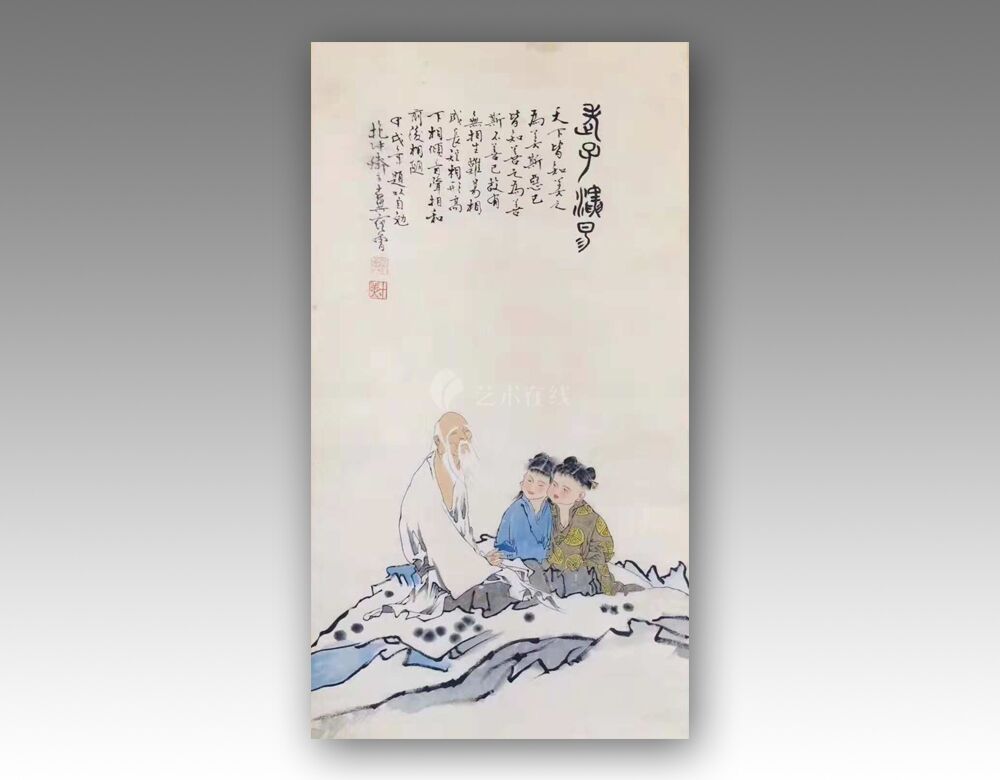 老子演易
天下皆知美之
為美斯惡已
皆知善之為善
斯不善已故有
無相生難易相
成長短相形高
下相傾音聲相和
前後相隨
甲戌年題以自勉
抱冲齋主十翼范曾
艺术在线